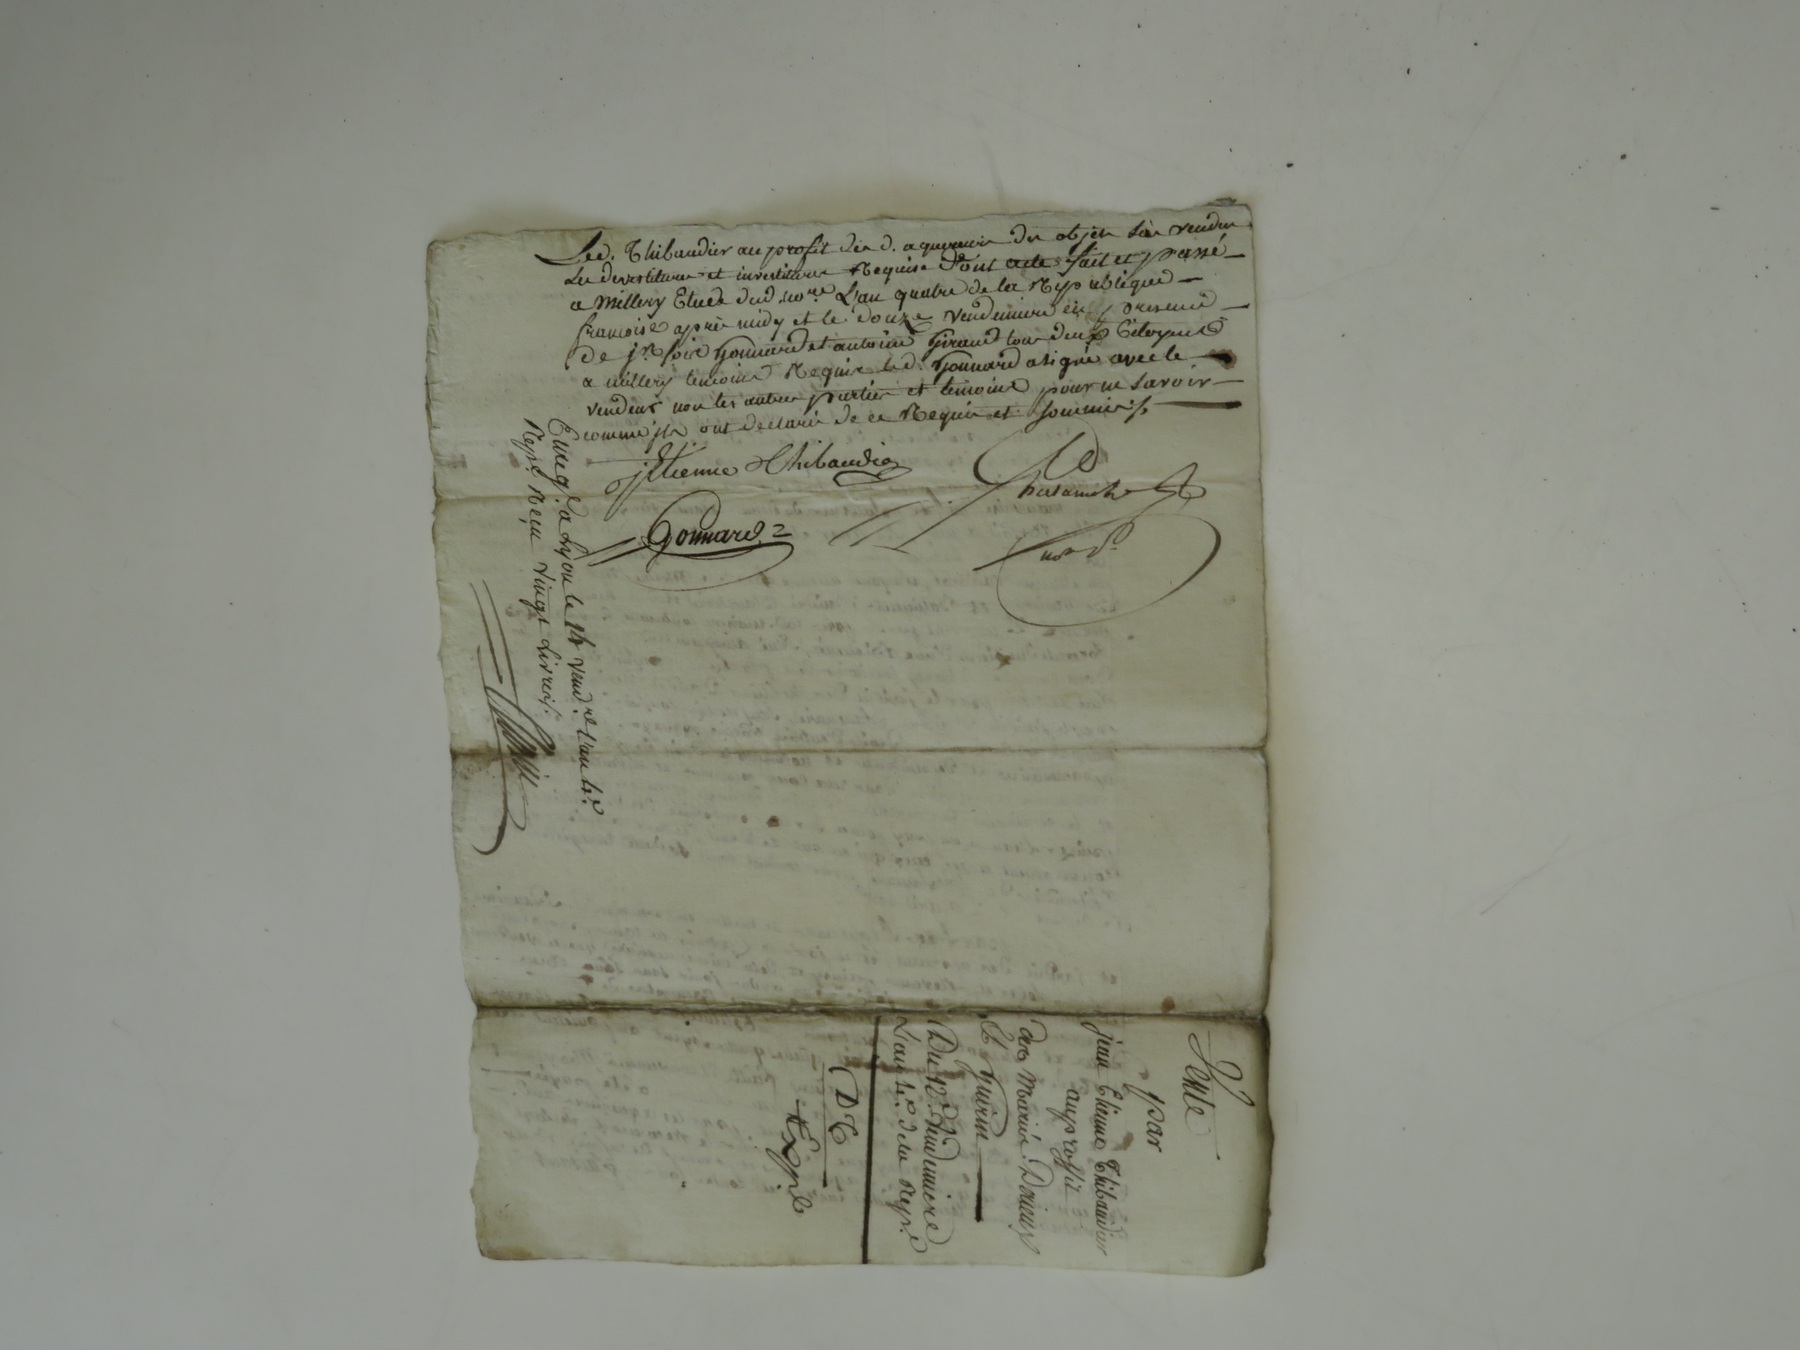 Led. Thibaudier au profit des d. aquereurs des objets sus vendus
les devestiture et investiture Requise Dont acte fait et passé
a Millery Etude dud. no.re L'an quatre de la Republique
francoise après midy et le douze vendemiere en presence
de j.n Gonnard et antoine Giraud tous deux Citoyens
a millery temoins Requis led. Gonnard a signé avec le
vendeur non les autres parties et temoins pour ne savoir
comme ils ont declaré de ce Requis et sommés
jEtienne Thibaudier
Gonnard
Enreg.é a Lyon le 14 vend.re l'an 4.e
Rep.e Reçu vingt Livres
Vente
par
jean Etienne Thibaudier
au proffit
des Mariés Dorieux
Et Guérin
Du 12.e Vendemiere
L'an 4.e de la Rep.e
Exp.é